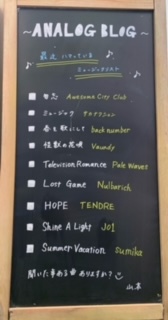 ~ANALOG BLOG~
最近 ハマっている
ミュージックリスト
勿忘 Awesome City Club
ミュージック サカナクション
春を歌にして back number
怪獣の花唄 Vaundy
Television Romance Pale Waves
Lost Game Nulbarich
HOPE TENDRE
Shine A Light JO1
Summer Vacation sumika
聞いた事ある曲ありますか?
山本